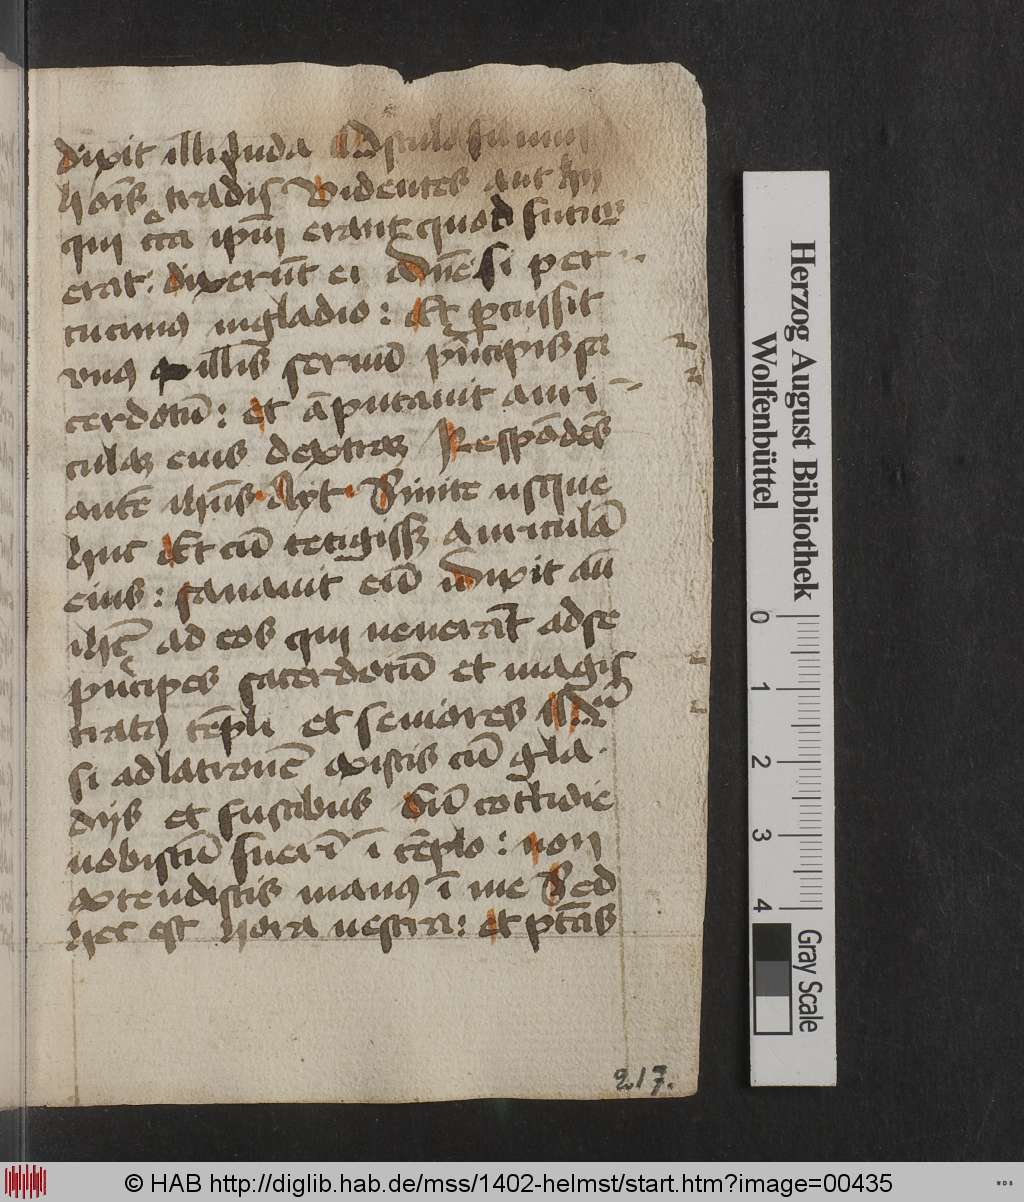 dixit illi Juda Osculo filium
hois tradis Videntes aut hii
qui cca ipm erant quod futur
erat: dixerut ei dne si per
cucimus in gladio: Et pcussit
unus ex illis seruu pncipis sa
cerdotu: et aputauit auri
culaz eius dextraz Respodes
aute ihus Ayt Sinite usque
huc Et cu tetigissz auricula
eius: sanauit eu Dixit au
ihc ad eos qui uenerat ad se
pncipes sacerdotu et magis
tratus tepli et seniores
si ad latrone existis cu gla
diis et fustibus Cu cottidie
uobiscu fueri i teplo: non
extendistis manus i me Sed
hec est hora uestra: et ptas
217.
Herzog August Bibliothek
Wolfenbüttel
0 1 2 3 4
Gray Scale
© HAB http://diglib.hab.de/mss/1402-helmst/start.htm?image=00435